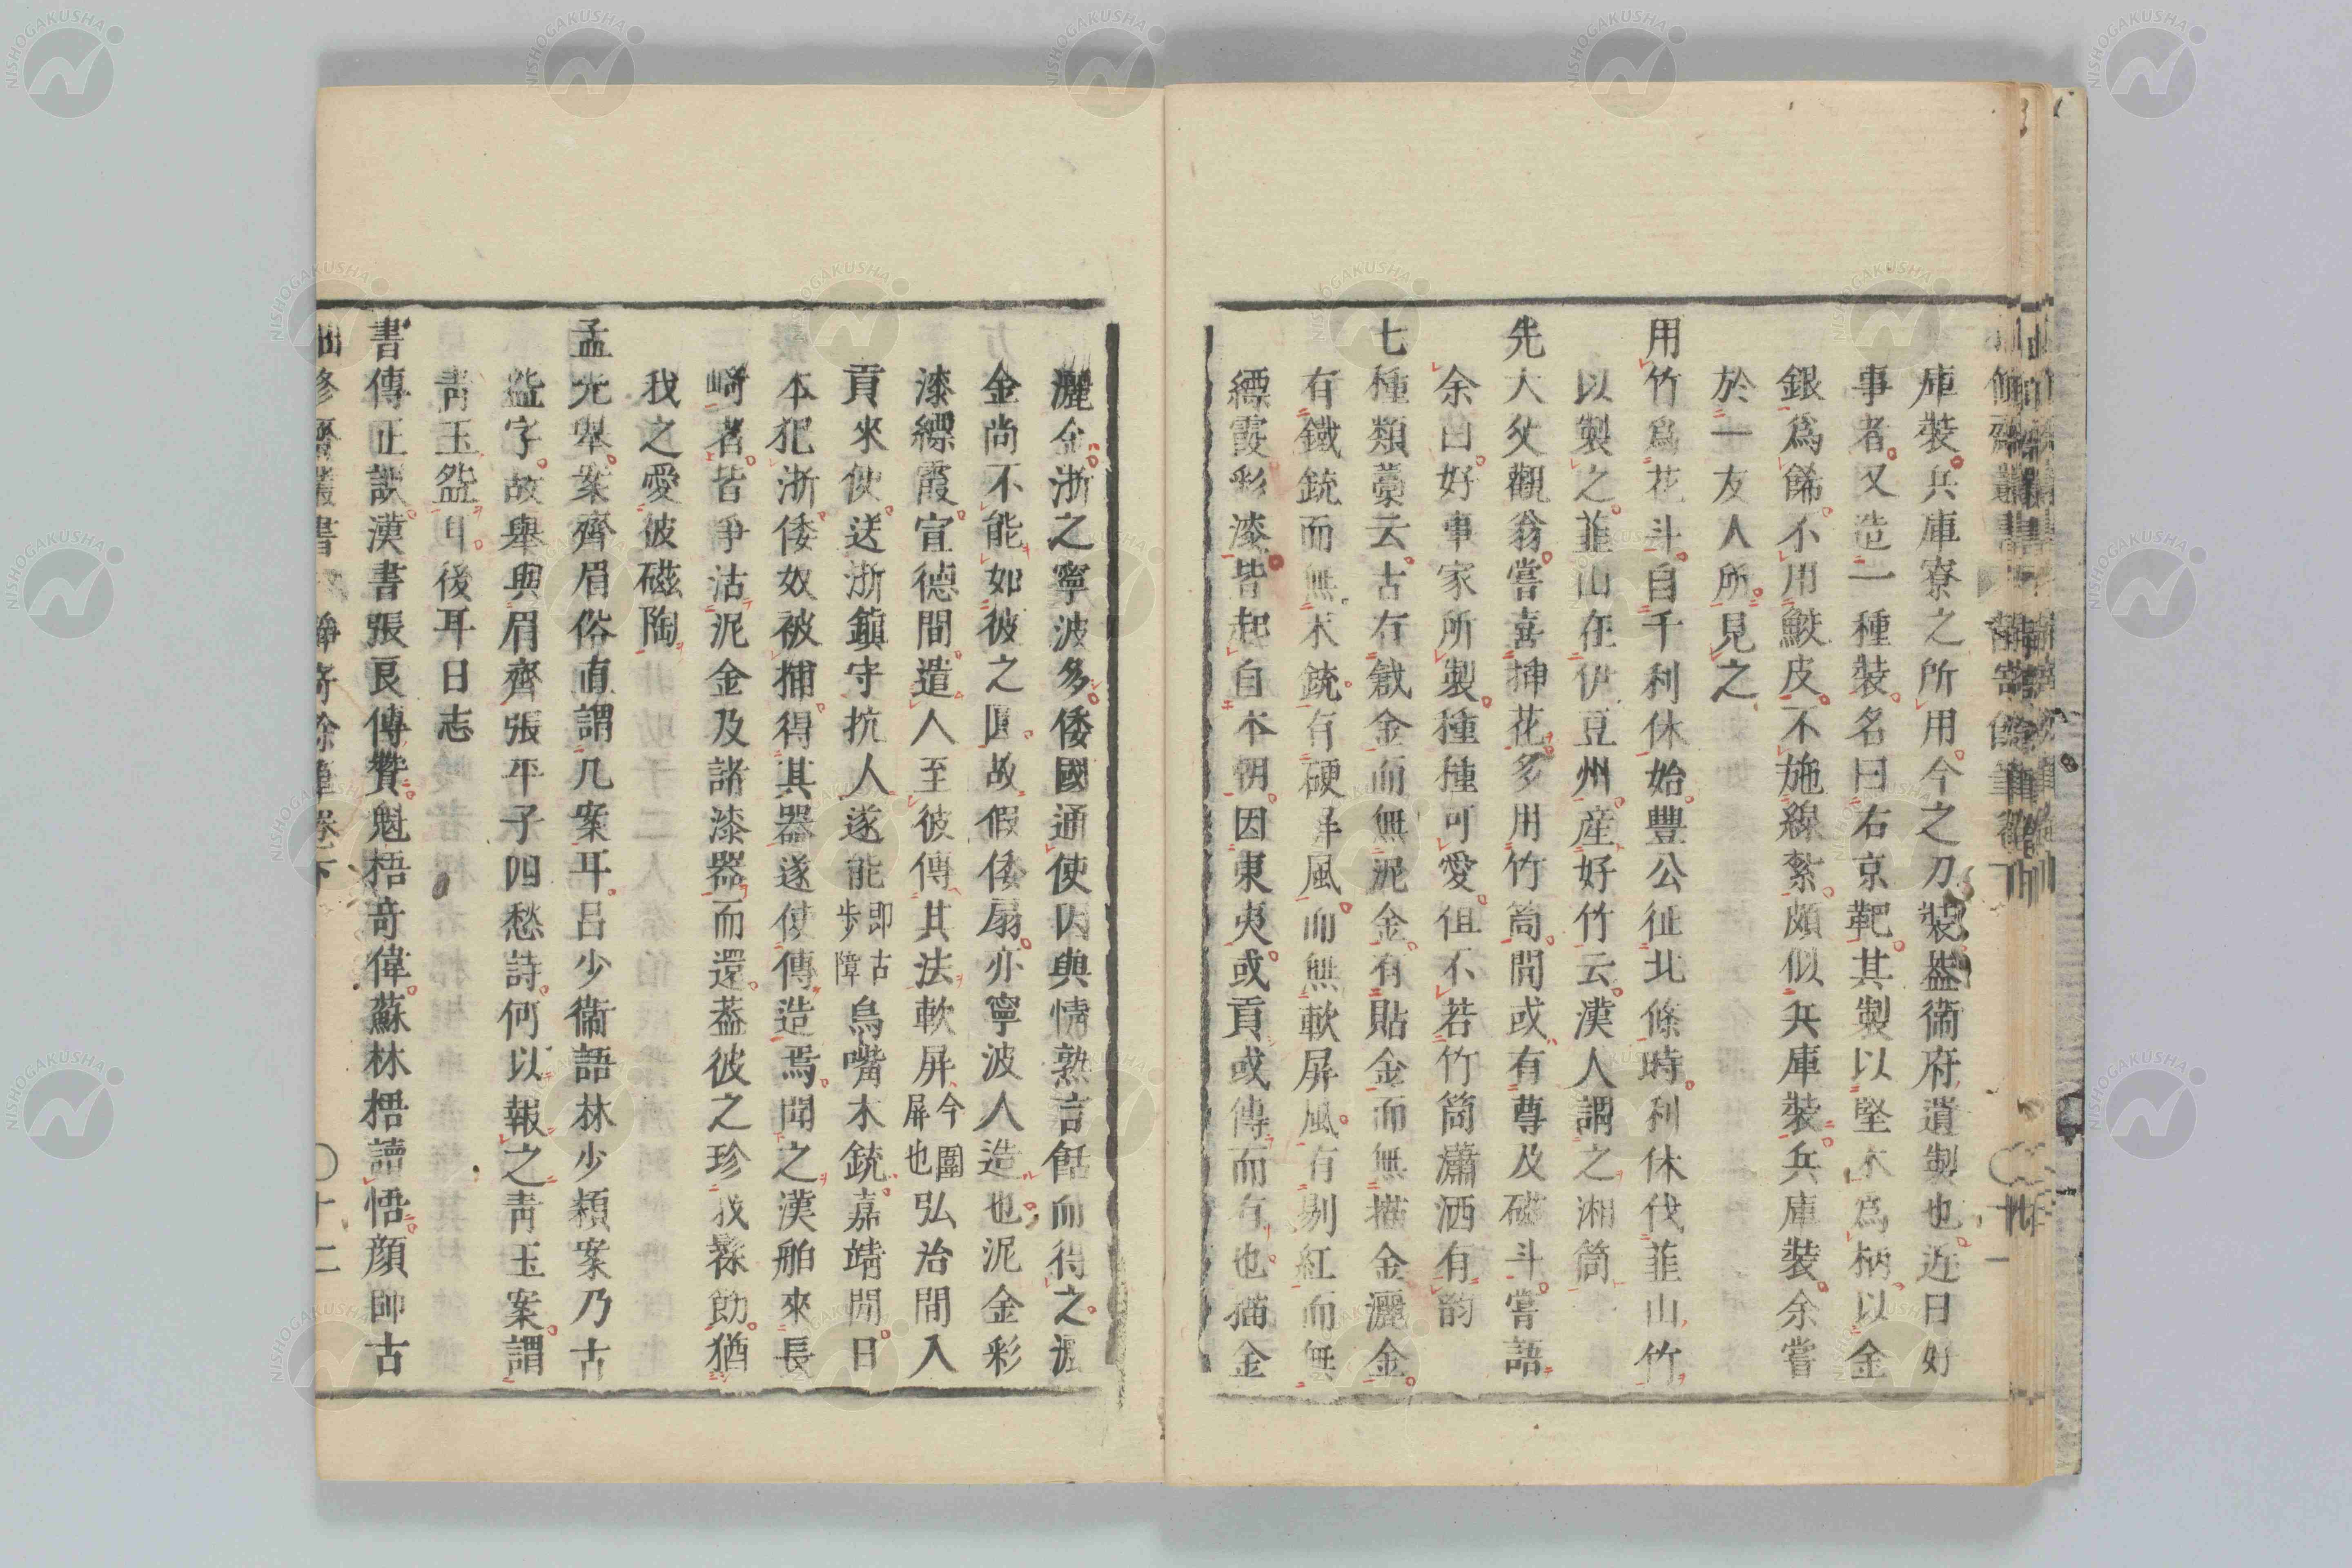 庫裝兵庫寮之所用今之刀裝蓋衞府遺製也近日好
事者又造一種裝名曰右京靶其製以堅木爲柄以金
銀爲餙不用鮫皮不施線紮頗似兵庫裝兵庫裝余嘗
於一友人所見之
用竹爲花斗自千利休始豐公征北條時利休伐韮山竹
以製之韮山在伊豆州産好竹云漢人謂之湘筒
先大父觀翁嘗喜揷花多用竹筒間或有尊及磁斗嘗語
余曰好事家所製種種可愛但不若竹筒瀟洒有韵
七種類藁云古有戧金而無泥金有貼金而無描金灑金
有鐵銃而無木銃有硬屏風而無軟屏風有剔紅而無
縹霞彩漆皆起自本朝因東夷或貢或傳而有也描金
灑金浙之寧波多倭國通使因與情熟言餂而得之灑
金尚不能如彼之圓故假倭扇亦寧波人造也泥金彩
漆縹霞宣德間遣人至彼傳其法軟屏今圍屏也弘治間入
貢來使送浙鎮守抗人遂能即古步障烏嘴木銃嘉靖間日
本犯浙倭奴被捕得其器遂使傳造焉聞之漢舶來長
崎者皆爭沽泥金及諸漆器而還蓋彼之珍我髹餝猶
我之愛彼磁陶
孟光舉案齊眉俗直謂几案耳呂少衞語林少穎案乃古
盌字故舉與眉齊張平子四愁詩何以報之靑玉案謂
靑玉盌耳後耳日志
書傳正誤漢書張良傳贊魁梧奇偉蘇林梧讀悟顏師古